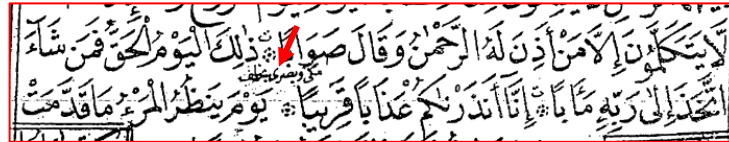 لَّا يَتَكَلَّمُونَ إِلَّا مَنْ أَذِنَ لَهُ الرَّحْمٰنُ وَقَالَ صَوَابًا ۞ ذٰلِكَ الْيَوْمُ الْحَقُّ فَمَن شَآءَ
مكى وبصرى بخلف
اتَّخَذَ إِلٰى رَبِّهِ مَاٰبًا ۞ إِنَّآ أَنذَرْنٰكُمْ عَذَابًا قَرِيبًا ۞ يَوْمَ يَنظُرُ الْمَرْءُ مَا قَدَّمَتْ